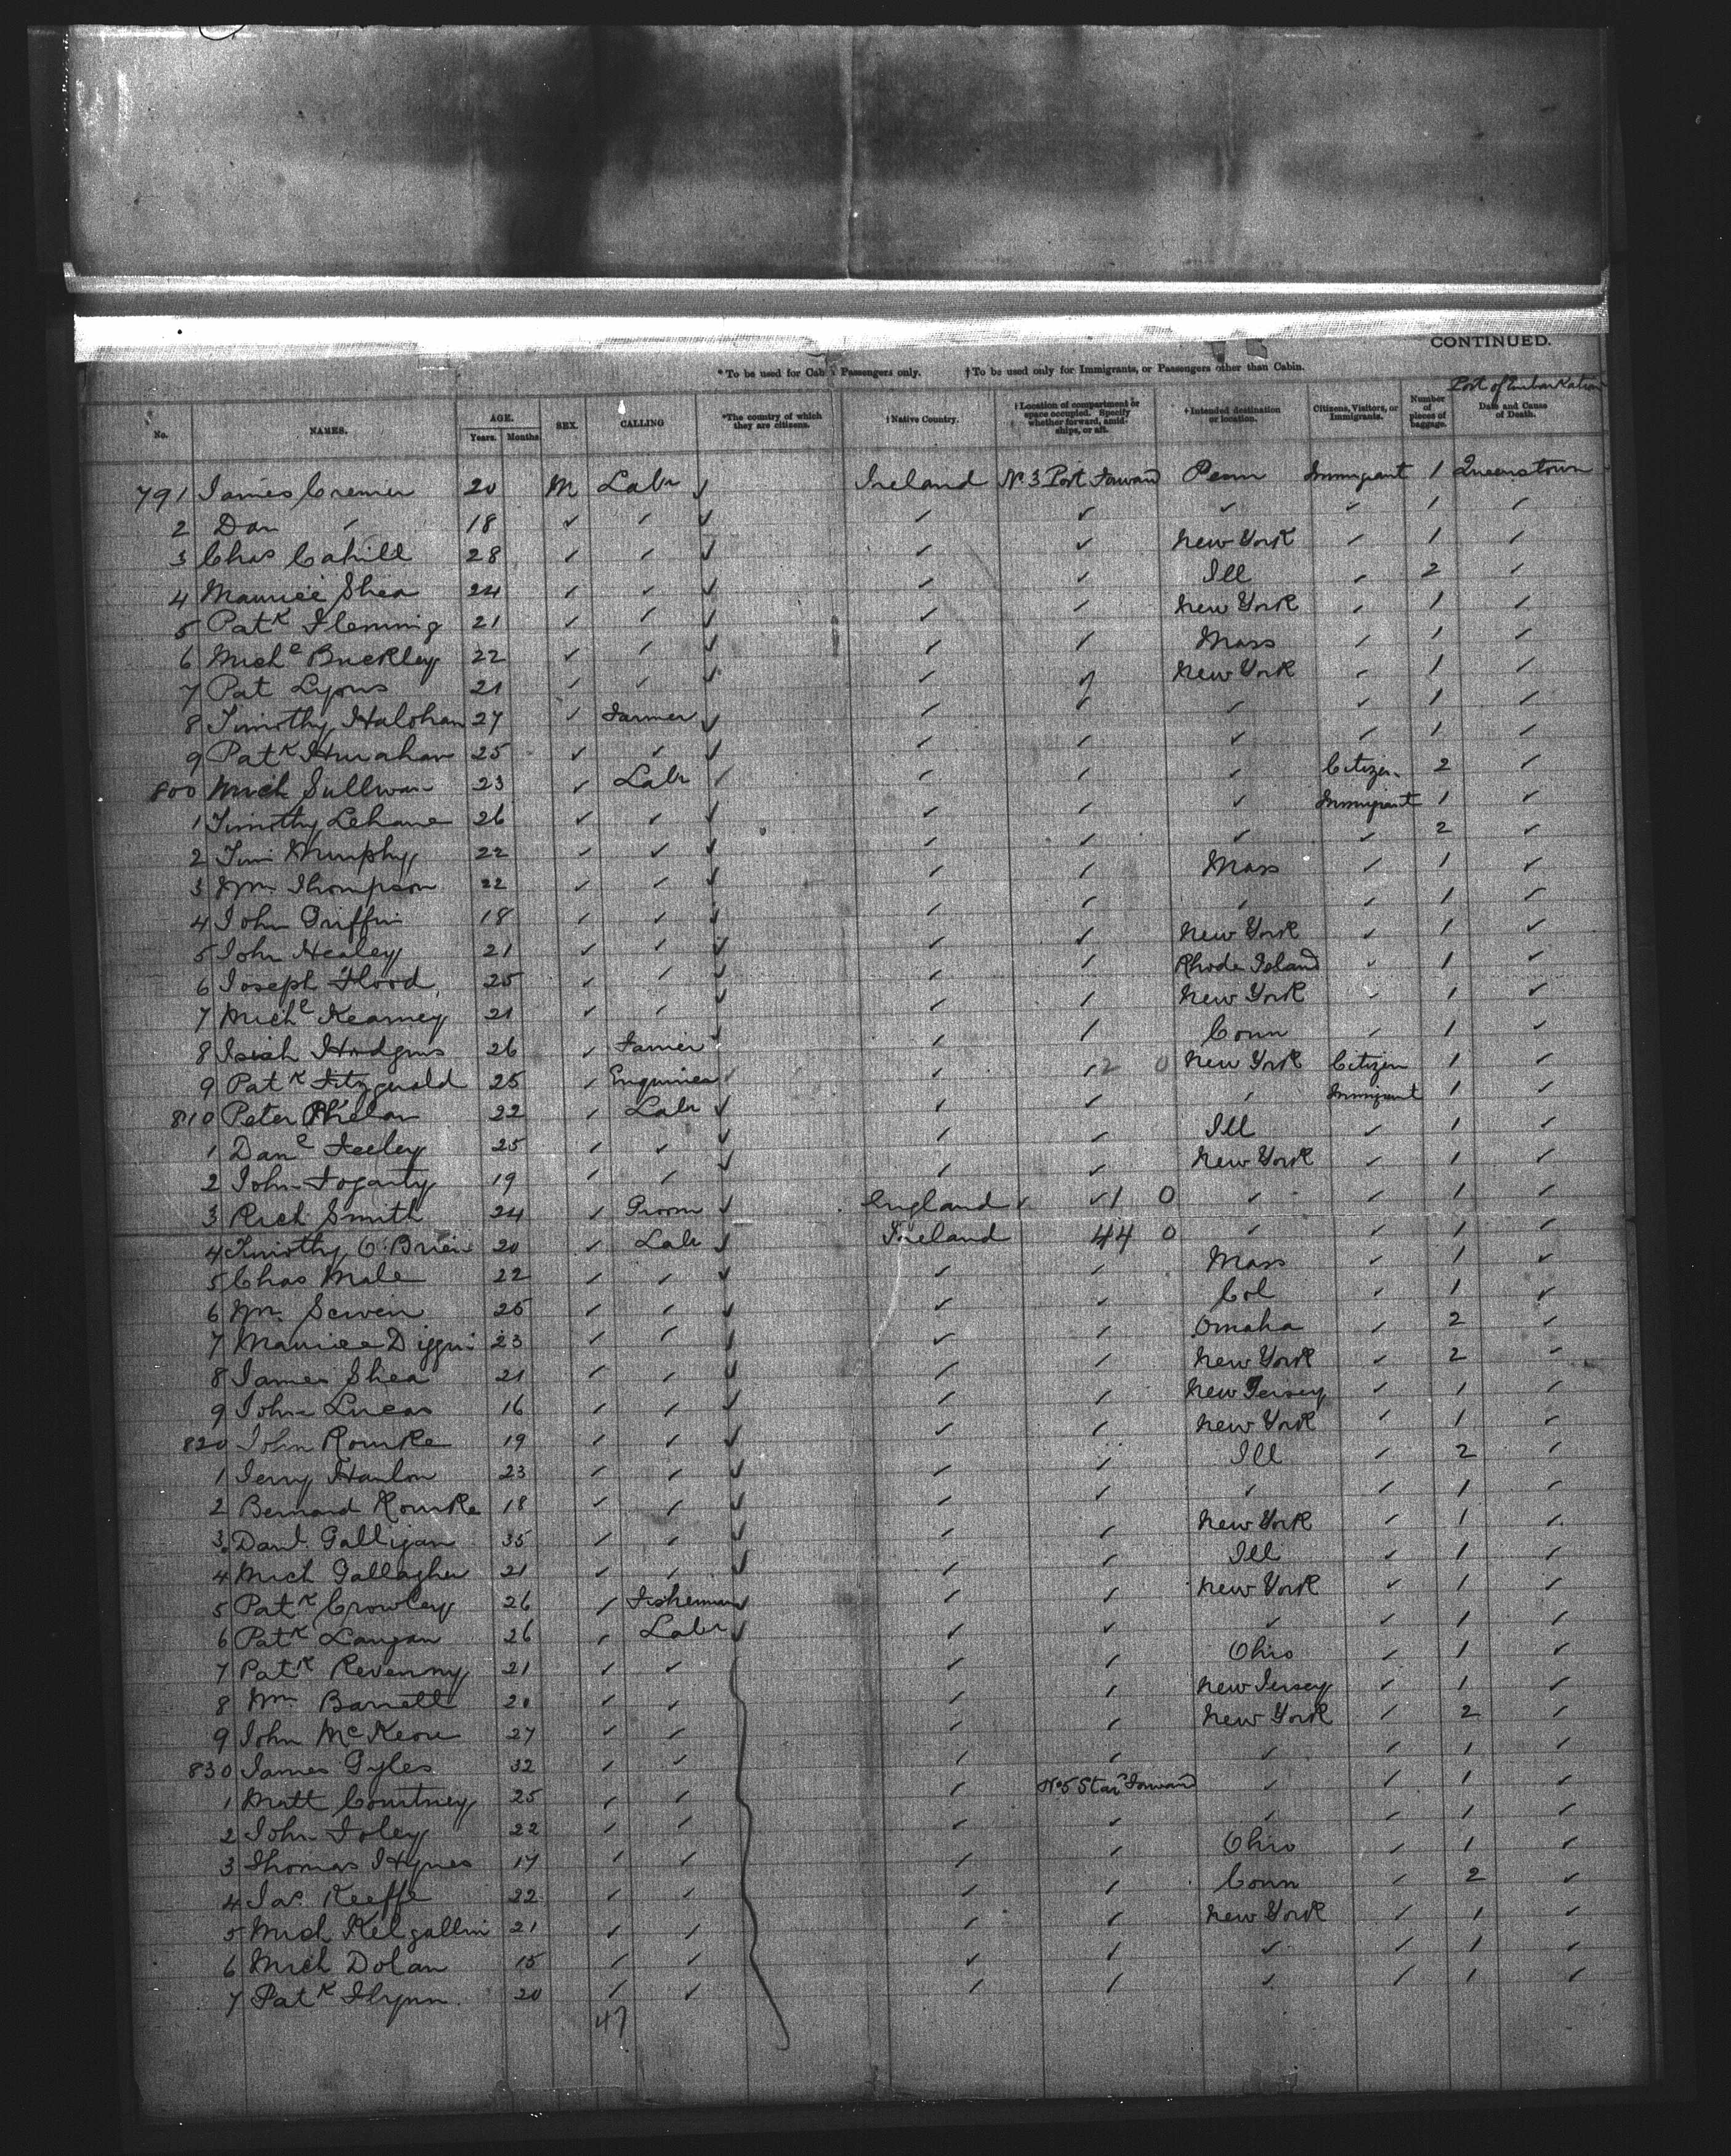 CONTINUED.
* To be used for Cabin Passengers only. † To be used only for Immigrants, or Passengers other than Cabin.
Port of Embarkation
No. NAMES. AGE. Years. Months. SEX. CALLING *The country of which they are citizens. †Native Country. †Location of compartment or space occupied. Specify whether forward, amidships, or aft. †Intended destination or location. Citizens, Visitors, or Immigrants. Number of pieces of baggage. Date and Cause of Death.
791 James Cremin 20 M Labr ✓ Ireland No 3 Port Forward Penn Immigrant 1 Queenstown
2 Dan ✓ 18 ✓ ✓ ✓ ✓ ✓ ✓ ✓ 1 ✓
3 Chas Cahill 28 ✓ ✓ ✓ ✓ ✓ New York ✓ 1 ✓
4 Maurice Shea 24 ✓ ✓ ✓ ✓ ✓ Ill ✓ 2 ✓
5 Patk Fleming 21 ✓ ✓ ✓ ✓ ✓ New York ✓ 1 ✓
6 Michl Buckley 22 ✓ ✓ ✓ ✓ ✓ Mass ✓ 1 ✓
7 Pat Lyons 21 ✓ ✓ ✓ ✓ ✓ New York ✓ 1 ✓
8 Timothy Halohan 27 ✓ Farmer ✓ ✓ ✓ ✓ ✓ 1 ✓
9 Patk 25 ✓ ✓ ✓ ✓ ✓ ✓ ✓ 1 ✓
800 Mich Sullivan 23 ✓ Labr ✓ ✓ ✓ ✓ Citizen 2 ✓
1 Timothy Lehane 26 ✓ ✓ ✓ ✓ ✓ ✓ Immigrant 1 ✓
2 Tim Murphy 22 ✓ ✓ ✓ ✓ ✓ ✓ ✓ 2 ✓
3 Wm Thompson 22 ✓ ✓ ✓ ✓ ✓ Mass ✓ 1 ✓
4 John Griffin 18 ✓ ✓ ✓ ✓ ✓ ✓ ✓ 1 ✓
5 John Healey 21 ✓ ✓ ✓ ✓ ✓ New York ✓ 1 ✓
6 Joseph Flood 25 ✓ ✓ ✓ ✓ ✓ Rhode Island ✓ 1 ✓
7 Michl Kearney 21 ✓ ✓ ✓ ✓ ✓ New York ✓ 1 ✓
8 Hodgins 26 ✓ Farmer ✓ ✓ ✓ Conn ✓ 1 ✓
9 Patk Fitzgerald 25 ✓ Engineer ✓ ✓ ✓ 2 0 New York Citizen 1 ✓
810 Peter Phelan 22 ✓ Labr ✓ ✓ ✓ ✓ Immigrant 1 ✓
1 Danl Feeley 25 ✓ ✓ ✓ ✓ ✓ Ill ✓ 1 ✓
2 John Fogarty 19 ✓ ✓ ✓ ✓ ✓ New York ✓ 1 ✓
3 Rich Smith 24 ✓ Groom ✓ England ✓ ✓ 1 0 ✓ ✓ 1 ✓
4 Timothy O'Brien 20 ✓ Labr ✓ Ireland 44 0 ✓ ✓ 1 ✓
5 Chas Male 22 ✓ ✓ ✓ ✓ ✓ Mass ✓ 1 ✓
6 Wm 25 ✓ ✓ ✓ ✓ ✓ Col ✓ 1 ✓
7 Maurice 23 ✓ ✓ ✓ ✓ ✓ Omaha ✓ 2 ✓
8 James Shea 21 ✓ ✓ ✓ ✓ ✓ New York ✓ 2 ✓
9 John Lucas 16 ✓ ✓ ✓ ✓ ✓ New Jersey ✓ 1 ✓
820 John Rourke 19 ✓ ✓ ✓ ✓ ✓ New York ✓ 1 ✓
1 Jerry Hanlon 23 ✓ ✓ ✓ ✓ ✓ Ill ✓ 2 ✓
2 Bernard Rourke 18 ✓ ✓ ✓ ✓ ✓ ✓ ✓ 1 ✓
3 Danl Galligan 35 ✓ ✓ ✓ ✓ ✓ New York ✓ 1 ✓
4 Mich Gallagher 21 ✓ ✓ ✓ ✓ ✓ Ill ✓ 1 ✓
5 Patk Crowley 26 ✓ Fisherman ✓ ✓ ✓ New York ✓ 1 ✓
6 Patk Langan 26 ✓ Labr ✓ ✓ ✓ ✓ ✓ 1 ✓
7 Patk Revenny 21 ✓ ✓ ✓ ✓ Ohio ✓ 1 ✓
8 Wm Barrett 20 ✓ ✓ ✓ ✓ New Jersey ✓ 1 ✓
9 John McKeon 27 ✓ ✓ ✓ ✓ New York ✓ 2 ✓
830 James Gyles 32 ✓ ✓ ✓ ✓ ✓ ✓ 1 ✓
1 Matt Courtney 25 ✓ ✓ ✓ No 5 Star Forward ✓ ✓ 1 ✓
2 John Foley 22 ✓ ✓ ✓ ✓ ✓ ✓ 1 ✓
3 Thomas Hynes 17 ✓ ✓ ✓ ✓ Ohio ✓ 1 ✓
4 Jas. Keeffe 22 ✓ ✓ ✓ ✓ Conn ✓ 2 ✓
5 Mich Kilgallin 21 ✓ ✓ ✓ ✓ New York ✓ 1 ✓
6 Mich Dolan 15 ✓ ✓ ✓ ✓ ✓ ✓ 1 ✓
7 Patk Flynn 20 ✓ ✓ ✓ ✓ ✓ ✓ 1 ✓
47